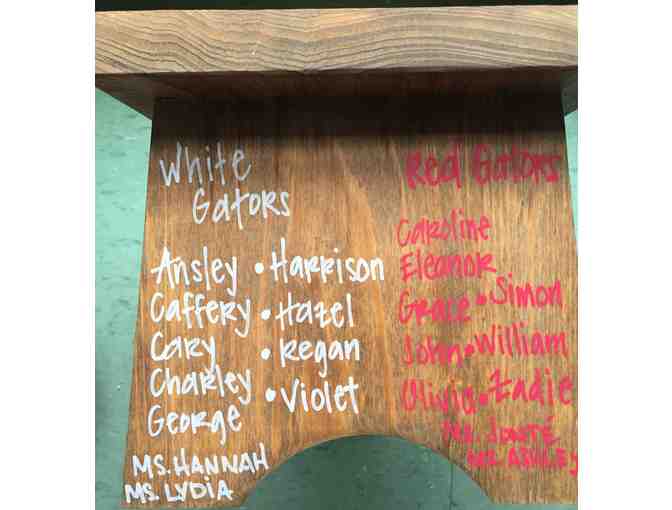 White
Gators
Ansley • Harrison
Caffery • Hazel
Cary • Regan
Charley • Violet
George
MS. HANNAH
MS. LYDIA
Red Gators
Caroline
Eleanor
Grace • Simon
John • William
Olivia • Zadie
MS. JONTÉ
MS. ASHLEY